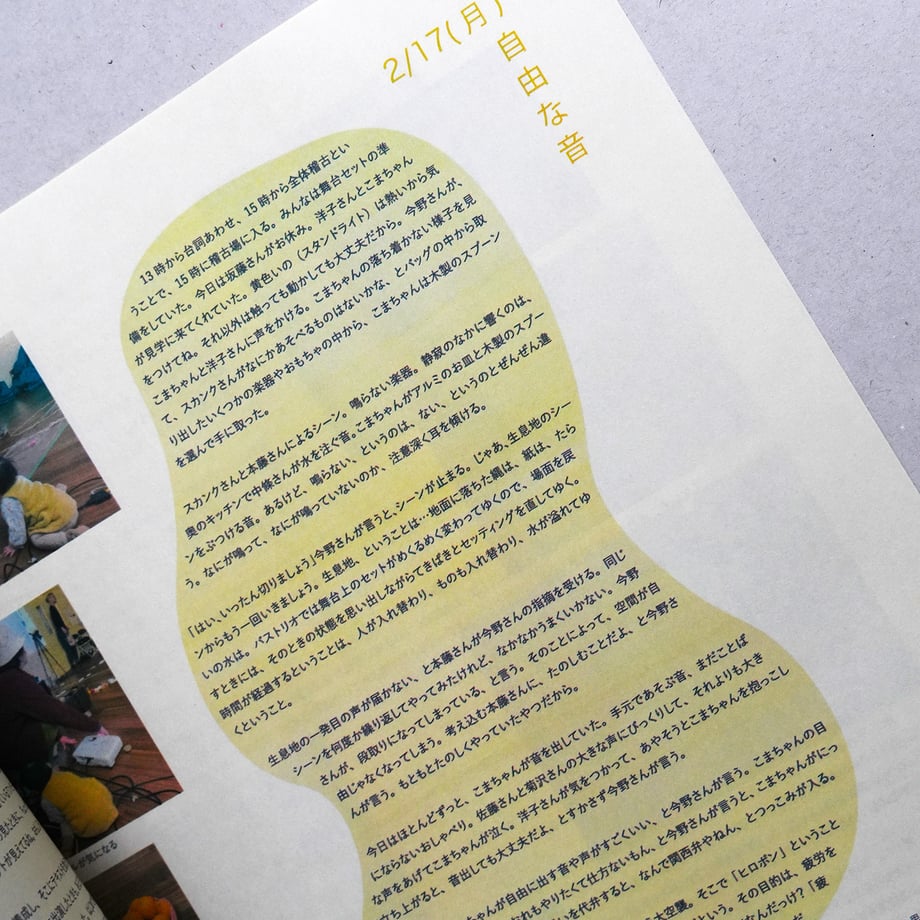 2/17(月)
自由な音
13時から台詞あわせ、15時から全体稽古とい
うことで、15時に稽古場に入る。みんなは舞台セットの準
備をしていた。今日は坂藤さんがお休み。洋子さんとこまちゃん
が見学に来てくれていた。黄色いの（スタンドライト）は熱いから気
をつけてね。それ以外は触っても動かしても大丈夫だから。今野さんが、
こまちゃんと洋子さんに声をかける。こまちゃんの落ち着かない様子を見
て、スカンクさんがなにかあそべるものはないかな、とバッグの中から取
り出したいくつかの楽器やおもちゃの中から、こまちゃんは木製のスプーン
を選んで手に取った。
スカンクさんと本藤さんによるシーン。鳴らない楽器。静寂のなかに響くのは、
奥のキッチンで中條さんが水を注ぐ音。こまちゃんがアルミのお皿と木製のスプー
ンをぶつける音。あるけど、鳴らない、というのは、ない、というのとぜんぜん違
う。なにが鳴って、なにが鳴っていないのか、注意深く耳を傾ける。
「はい、いったん切りましょう」今野さんが言うと、シーンが止まる。じゃあ、生息地のシー
ンからもう一回いきましょう。生息地、ということは…地面に落ちた縄は、紙は、たら
いの水は。パストリオでは舞台上のセットがめくるめく変わってゆくので、場面を戻
すときには、そのときの状態を思い出しながらてきぱきとセッティングを直してゆく。
時間が経過するということは、人が入れ替わり、ものも入れ替わり、水が溢れてゆ
くということ。
生息地の一発目の声が届かない、と本藤さんが今野さんの指摘を受ける。同じ
シーンを何度か繰り返してやってみたけれど、なかなかうまくいかない。今野
さんが、段取りになってしまっている、と言う。そのことによって、空間が自
由じゃなくなってしまう。考え込む本藤さんに、たのしむことだよ、と今野さ
んが言う。もともとたのしくやっていたやつだから。
今日はほとんどずっと、こまちゃんが音を出していた。手元であそぶ音、まだことば
にならないおしゃべり。佐藤さんと菊沢さんの大きな声にびっくりして、それよりも大き
な声をあげてこまちゃんが泣く。洋子さんが気をつかって、あやそうとこまちゃんを抱っこし
立ち上がると、音出しても大丈夫だよ、とすかさず今野さんが言う。
ちゃんが自由に出す音や声がすごくいい、と今野さんが言う。こまちゃんの目
れもやりたくて仕方ないもん、と今野さんが言うと、こまちゃんがにっ
いを代弁すると、なんで関西弁やねん、とつっこみが入る。
大空襲。そこで「ヒロポン」ということ
という。その目的は、疲労を
なんだっけ？「疲
が気になる